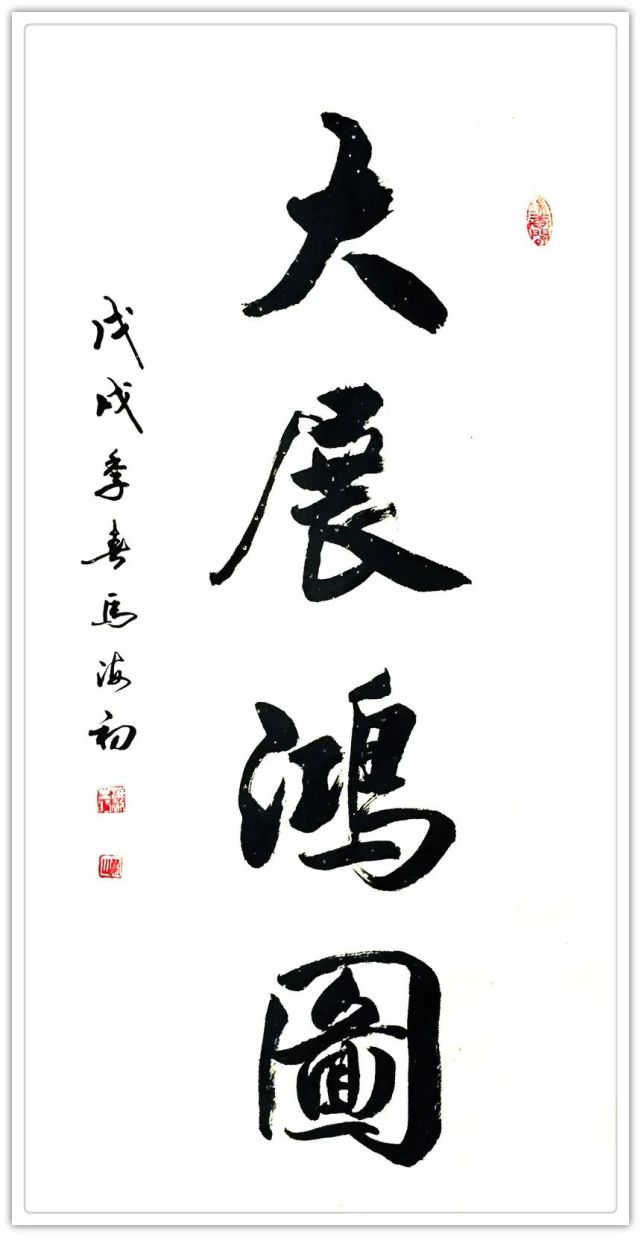 大展鴻圖
戊戌季春馬海初